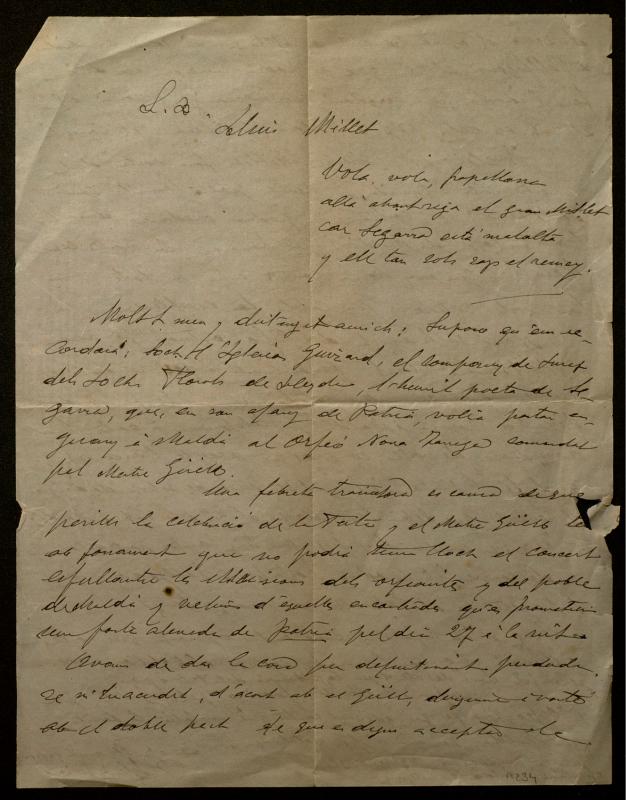 S. D.
Lluis Millet
Vola, vola, papellona
allà ahont siga el gran Millet
car Segarra está malalta
y ell tan sols sap el remey.
Molt meu y distingit amich: Suposo qu'em re-
cordará; soch H Iglesias Guizard, el company de Jurat
dels Jochs Florals de Lleyda, l'humil poeta de Se-
garra, que, en son afany de Patria, volia portar en-
guany á Maldá al Orfeó Nova Tárrega comandat
pel Mestre Güell.
Una febreta es causa de que
perilli la celebració de la Festa y el Mestre Güell
ab fonament que no podrá tenir lloch el concert
les ilusions dels orfeonistes y del poble
de Maldá y vehins d'aquelles encontrades qu'es prometian
forta alenada de Patria pel dia 27 á la nit
Avans de dar la cosa per definitivament perduda,
se m'ha acudit, d'acort ab el Güell, dirigirme á vosté
ab el doble de que es digni acceptar la
1234